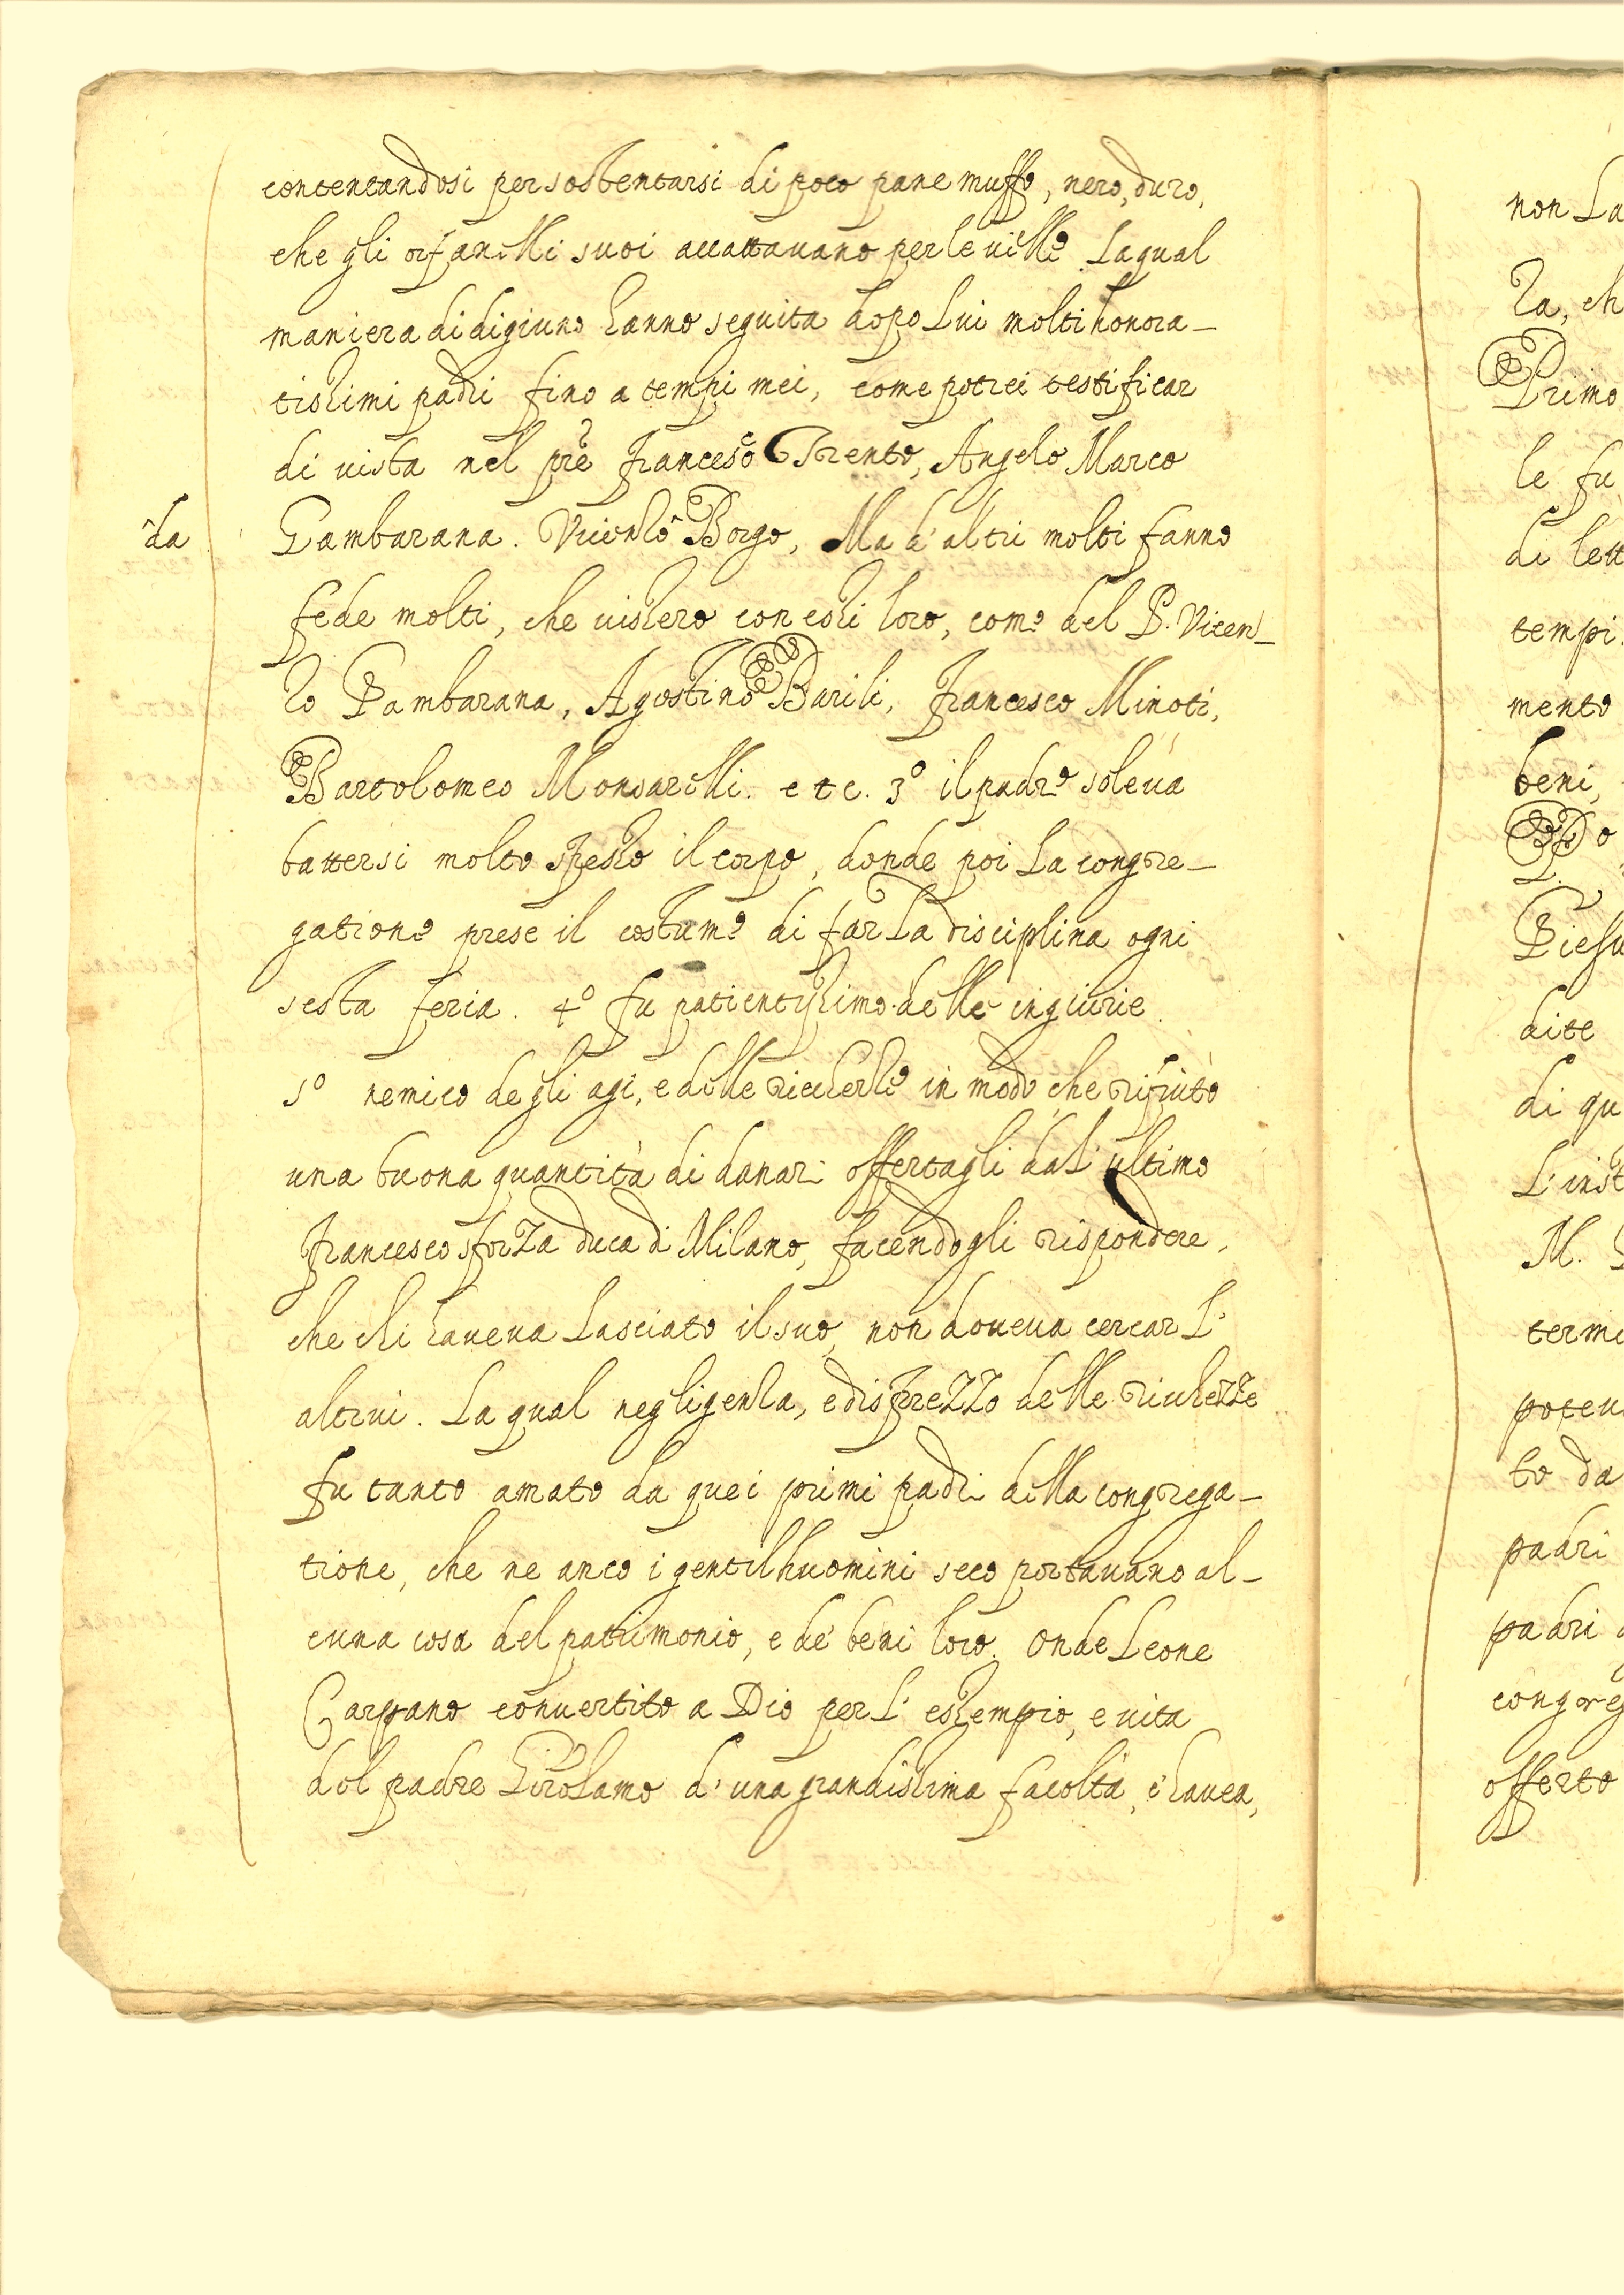 contentandosi per sostentarsi di poco pane muffo, nero, duro,
che gli orfanelli suoi accattavano per le ville. La qual
maniera di digiuno hanno seguita dopo Lui molti honora-
tissimi padri fino a tempi mei, come potrei testificar
di vista nel pre Francesco Trento, Angelo Marco
Gambarana. Vicenzo^ Borgo, Ma d'altri molti fanno
^da
fede molti, che vissero con essi loro, come del P. Vicen-
zo Gambarana, Agostino Barili, Francesco Minoti,
Bartolomeo Monsarelli. etc. 3º il padre soleva
battersi molto spesso il corpo, donde poi La congre-
gatione prese il costume di far La disciplina ogni
sesta feria. 4º fu patientissimo delle ingiurie.
5º nemico degli agi, e delle ricchezze in modo, che rifiutò
una buona quantità di danari offertagli dal' ultimo
Francesco sforza duca di Milano, facendogli rispondere,
che chi haveva Lasciato il suo, non doveva cercar L'
altrui. La qual negligenza, e disprezzo delle richezze
fu tanto amato da quei primi padri della congrega-
tione, che ne anco i gentilhuomini seco portavano al-
cuna cosa del patrimonio, e de' beni loro. Onde Leone
Carpano convertito a Dio per L' essempio, e vita
del padre Girolamo d' una grandissima facoltà, c'havea,
non La
za, ch
Primo
le fu
di lett
tempi.
mento
beni,
Giesu
dite
di qu
L' inst
M.
termi
poteu
to da
padri
padri
congreg
offerto